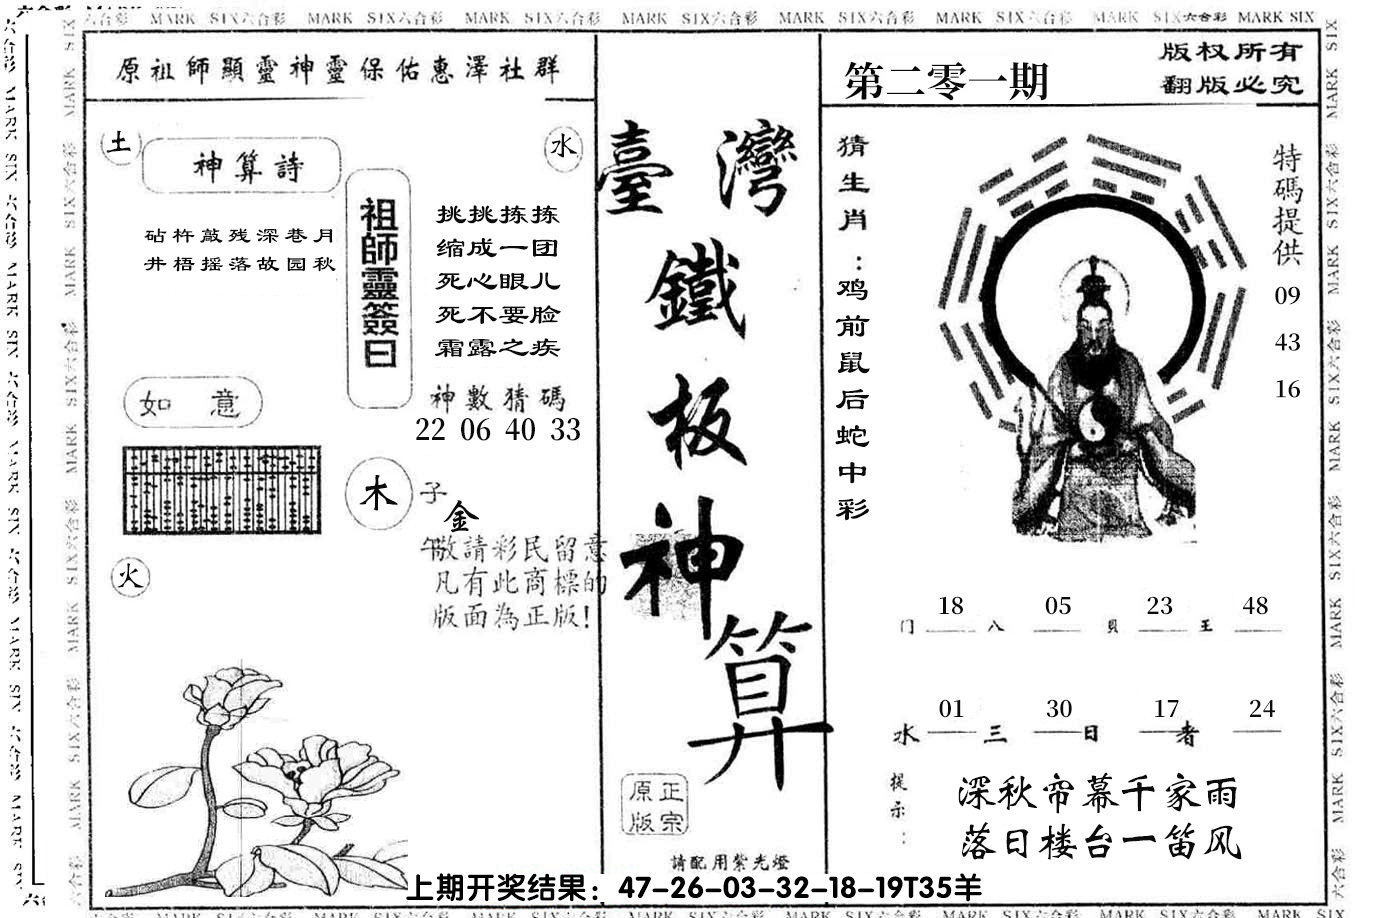 MARK SIX六合彩 MARK SIX六合彩 MARK SIX六合彩 MARK SIX六合彩 MARK SIX六合彩 MARK SIX六合彩 MARK SIX六合彩 MARK SIX
原祖師顯靈神靈保佑惠澤社群
土
神算詩
水
砧杵敲残深巷月
井梧摇落故园秋
祖師靈簽曰
挑挑拣拣
缩成一团
死心眼儿
死不要脸
霜露之疾
神數猜碼
22 06 40 33
如 意
木
子
金
午
敬請彩民留意
凡有此商標的
版面為正版!
火
臺灣
鐵
板
神
算
正宗
原版
請配用紫光燈
第二零一期
版权所有
翻版必究
猜生肖:鸡前鼠后蛇中彩
特碼提供
09
43
16
18 05 23 48
门 八 貝 王
01 30 17 24
水 三 日 者
提示:
深秋帘幕千家雨
落日楼台一笛风
上期开奖结果：47-26-03-32-18-19T35羊